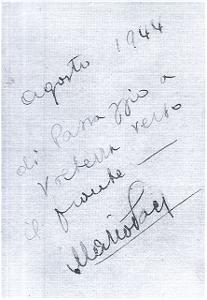 agosto 1944
di Passaggio a
Volterra verso
il fronte —